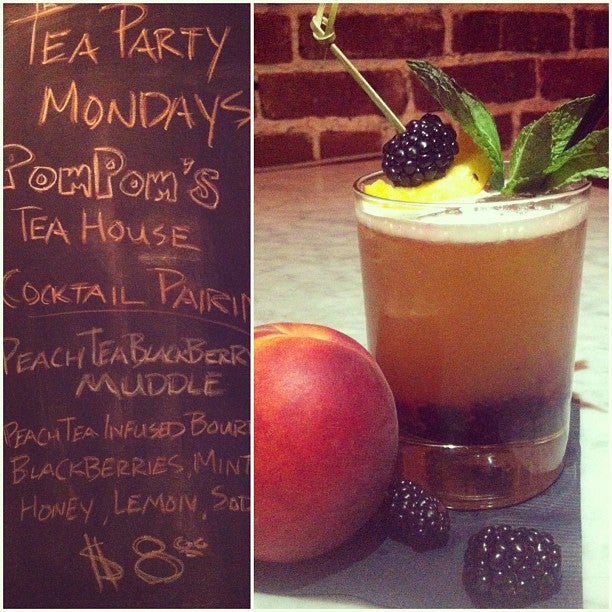 TEA PARTY
MONDAYS
POMPOM'S
TEA HOUSE
COCKTAIL PAIRIN
PEACH TEA BLACKBERRY
MUDDLE
PEACH TEA INFUSED BOUR
BLACKBERRIES, MINT
HONEY, LEMON, SOD
$8